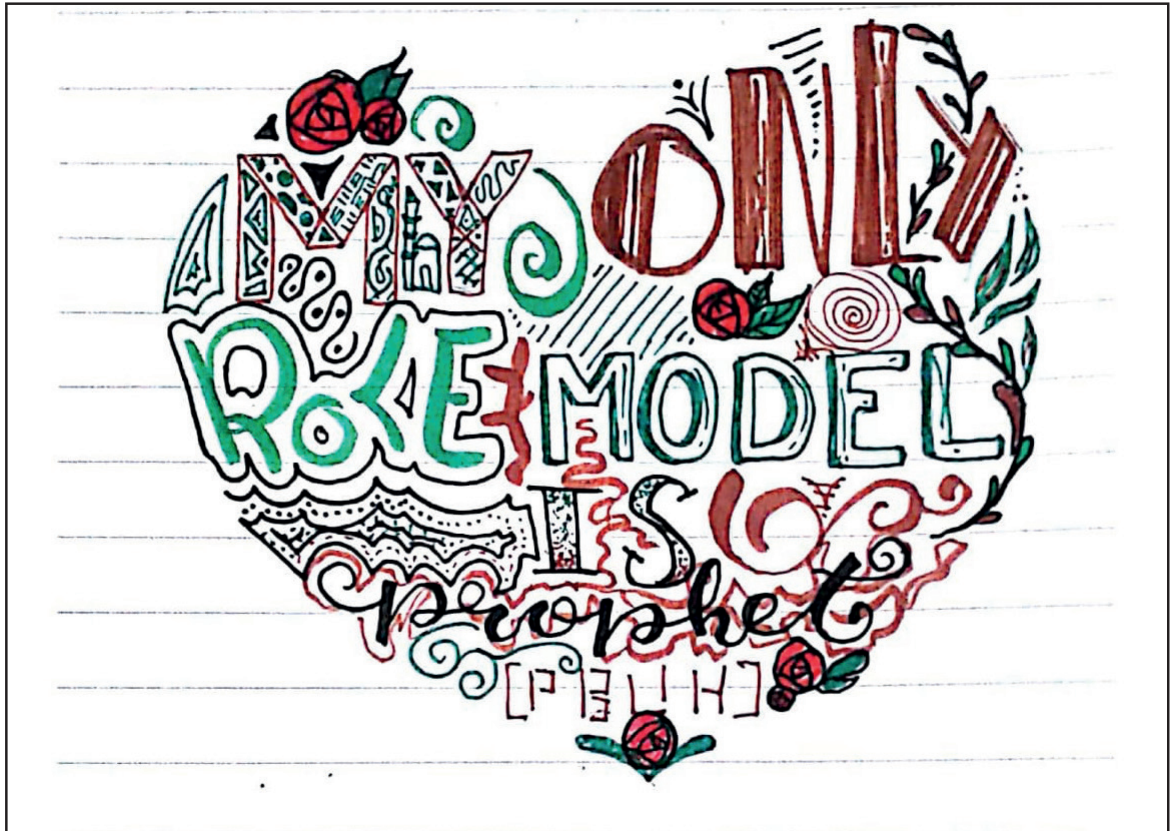 MY ONLY
ROLE MODEL
IS
prophet
[PBUH]